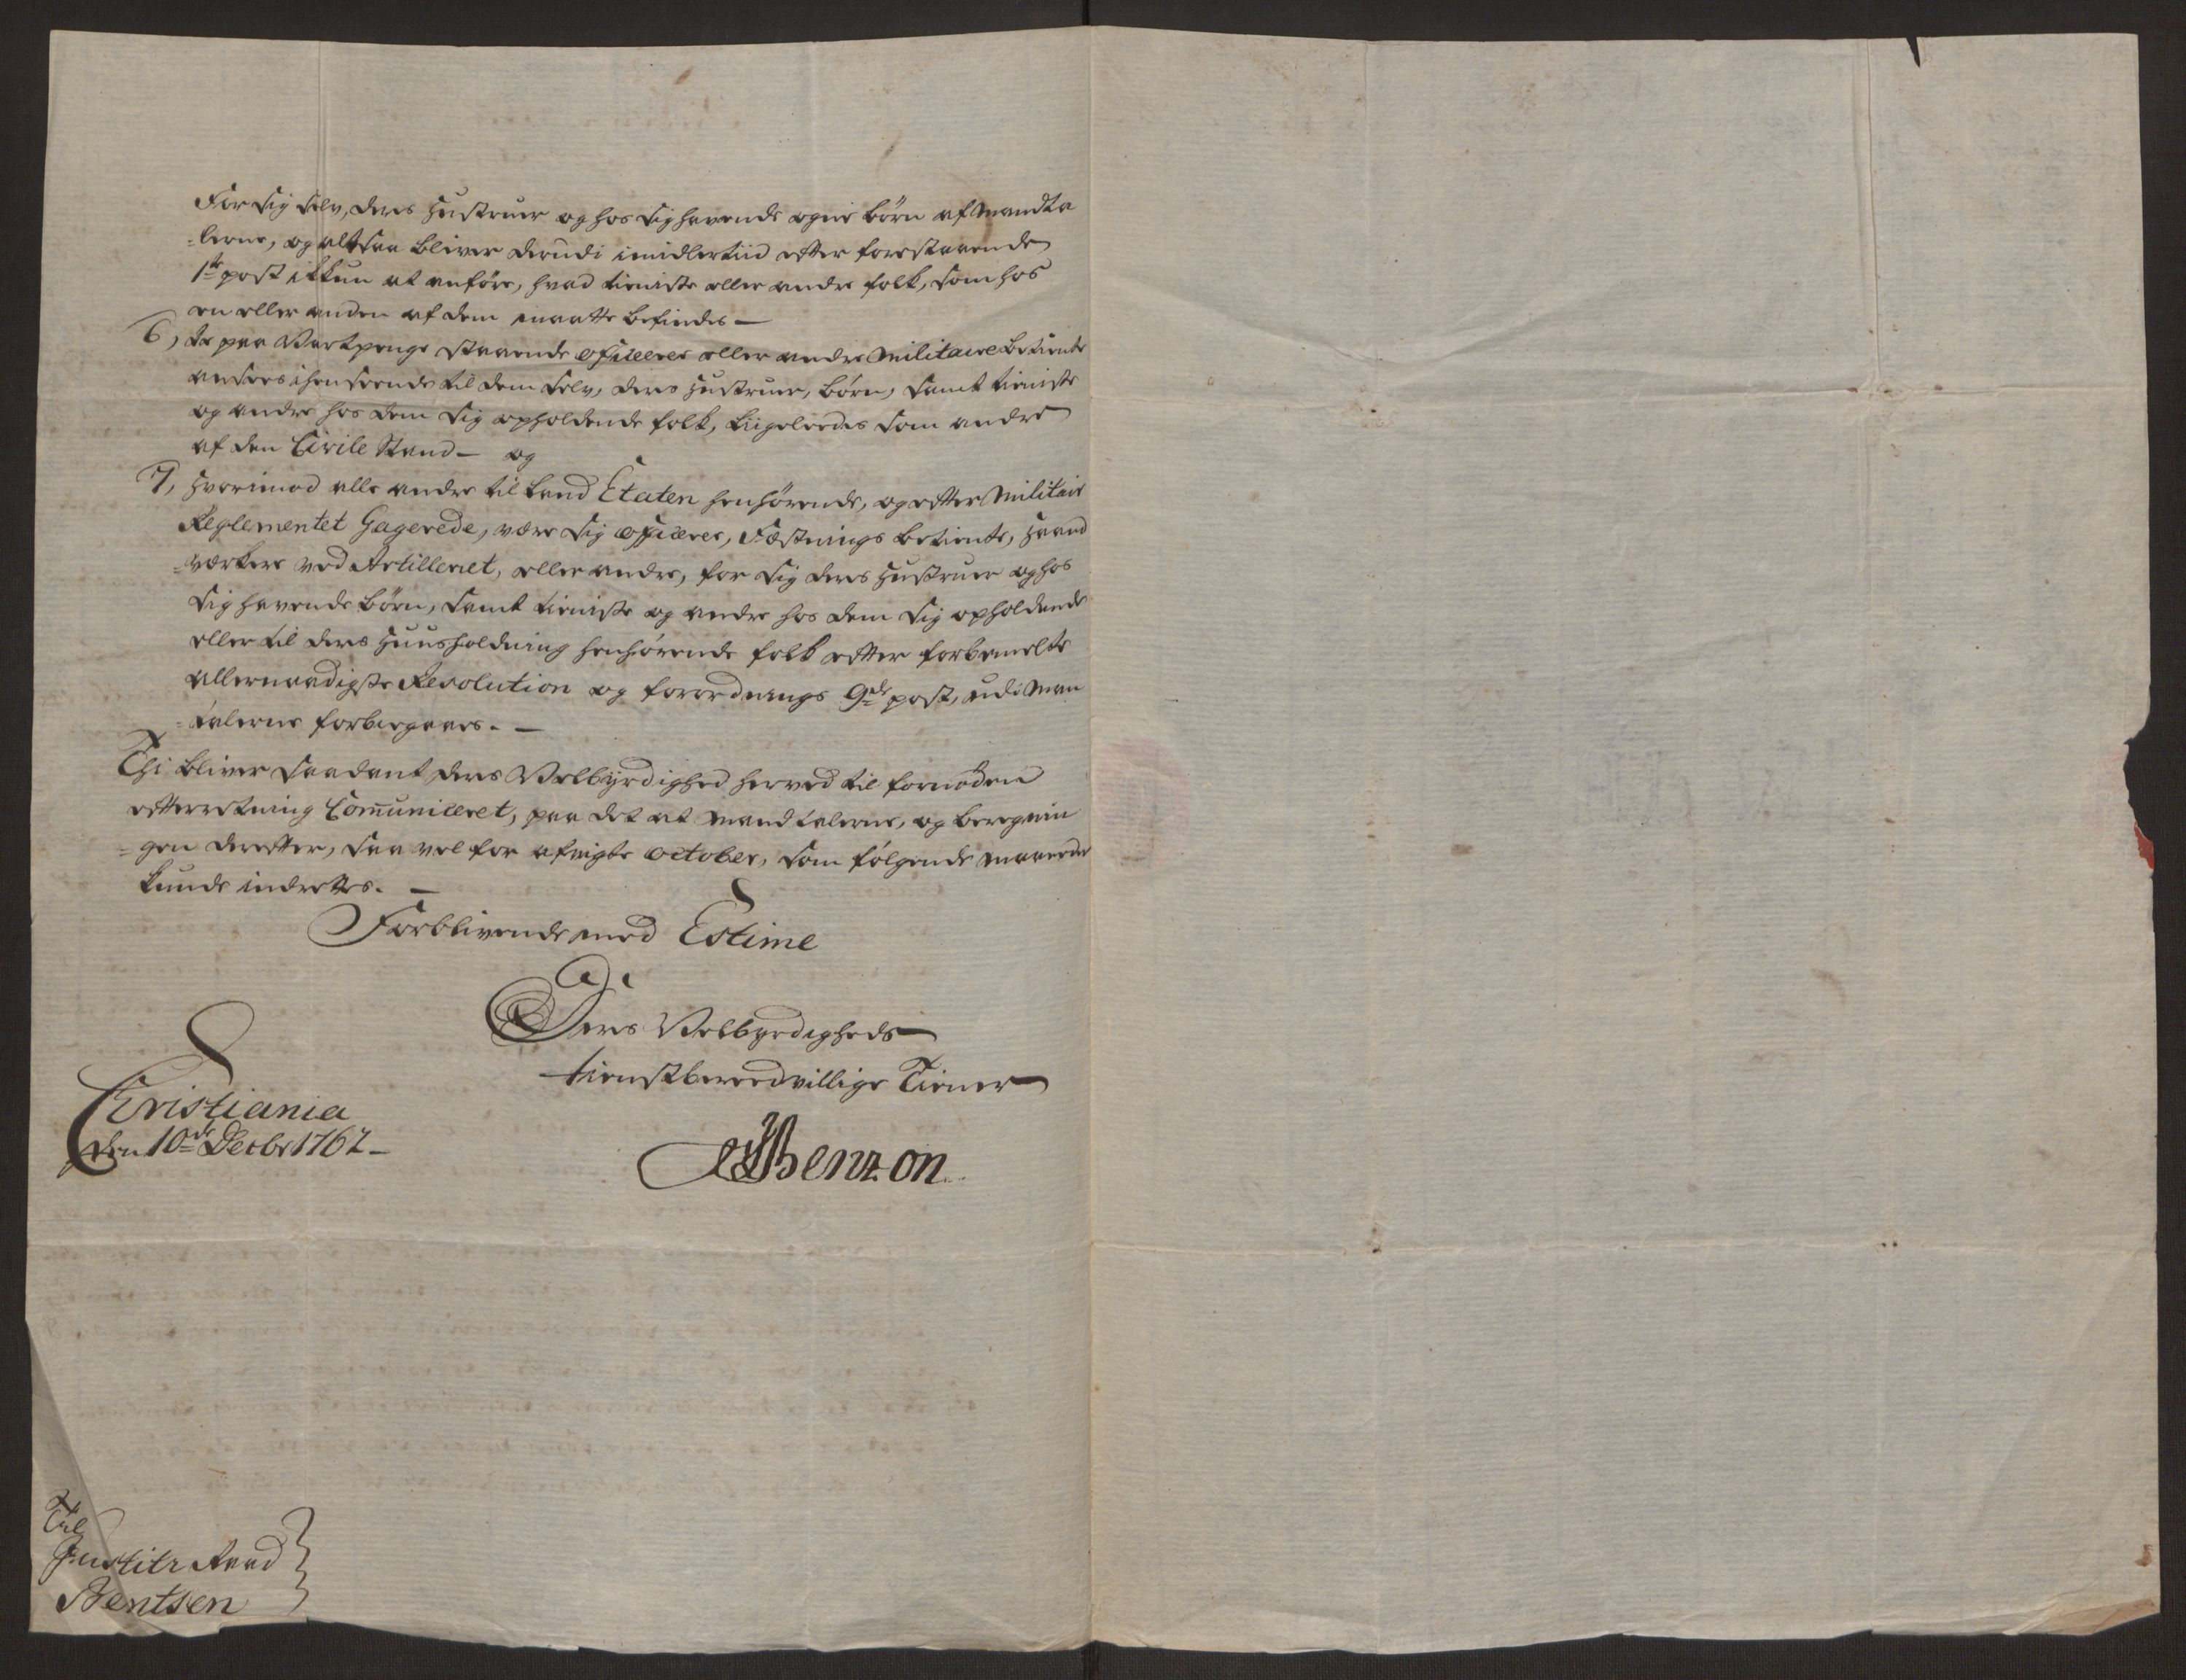 For sig selv, deres Hustruer og hos sig havende egne børn af Mandta
-lerne, og altsaa bliver derudi imidlertiid efter forestaaende
1ste post ikkun at anføre, hvad tieniste eller andre folk, som hos
en eller anden af dem maatte befindes —
6, de paa Vartpenge staaende officerer eller andre Militaire betiente
ansees i henseende til dem selv, deres Hustruer, børn, samt tieniste
og andre hos dem sig opholdende folk, liigeleedes som andre
af den Civile Stand — og
7, Hvorimod alle andre til Land Etaten henhørende, og efter Militair
Reglementet Gagerede, være sig officerer, Fæstnings betiente, Haand
-værkere ved Artilleriet, eller andre, for sig deres Hustruer og hos
sig havende børn, samt tieniste og andre hos dem sig opholdende
eller til deres Huusholdning henhørende folk efter forbemelte
allernaadigste Resolution og forordnings 9de post, udi Man
-talerne forbiegaaes. —
Thi bliver saadant deres Velbyrdighed herved til fornøden
efterretning Communiceret, paa det at Mandtalerne, og beregnin
-gen derefter, saa vel for afvigte October, som følgende maaneder
kunde indrettes. —
Forblivende med Estime
Deres Velbyrdigheds
tienstbereedvillige Tiener
Christiania
den 10de Decbr 1762 —
Benzon
Til
Justitz Raad
Bentsen